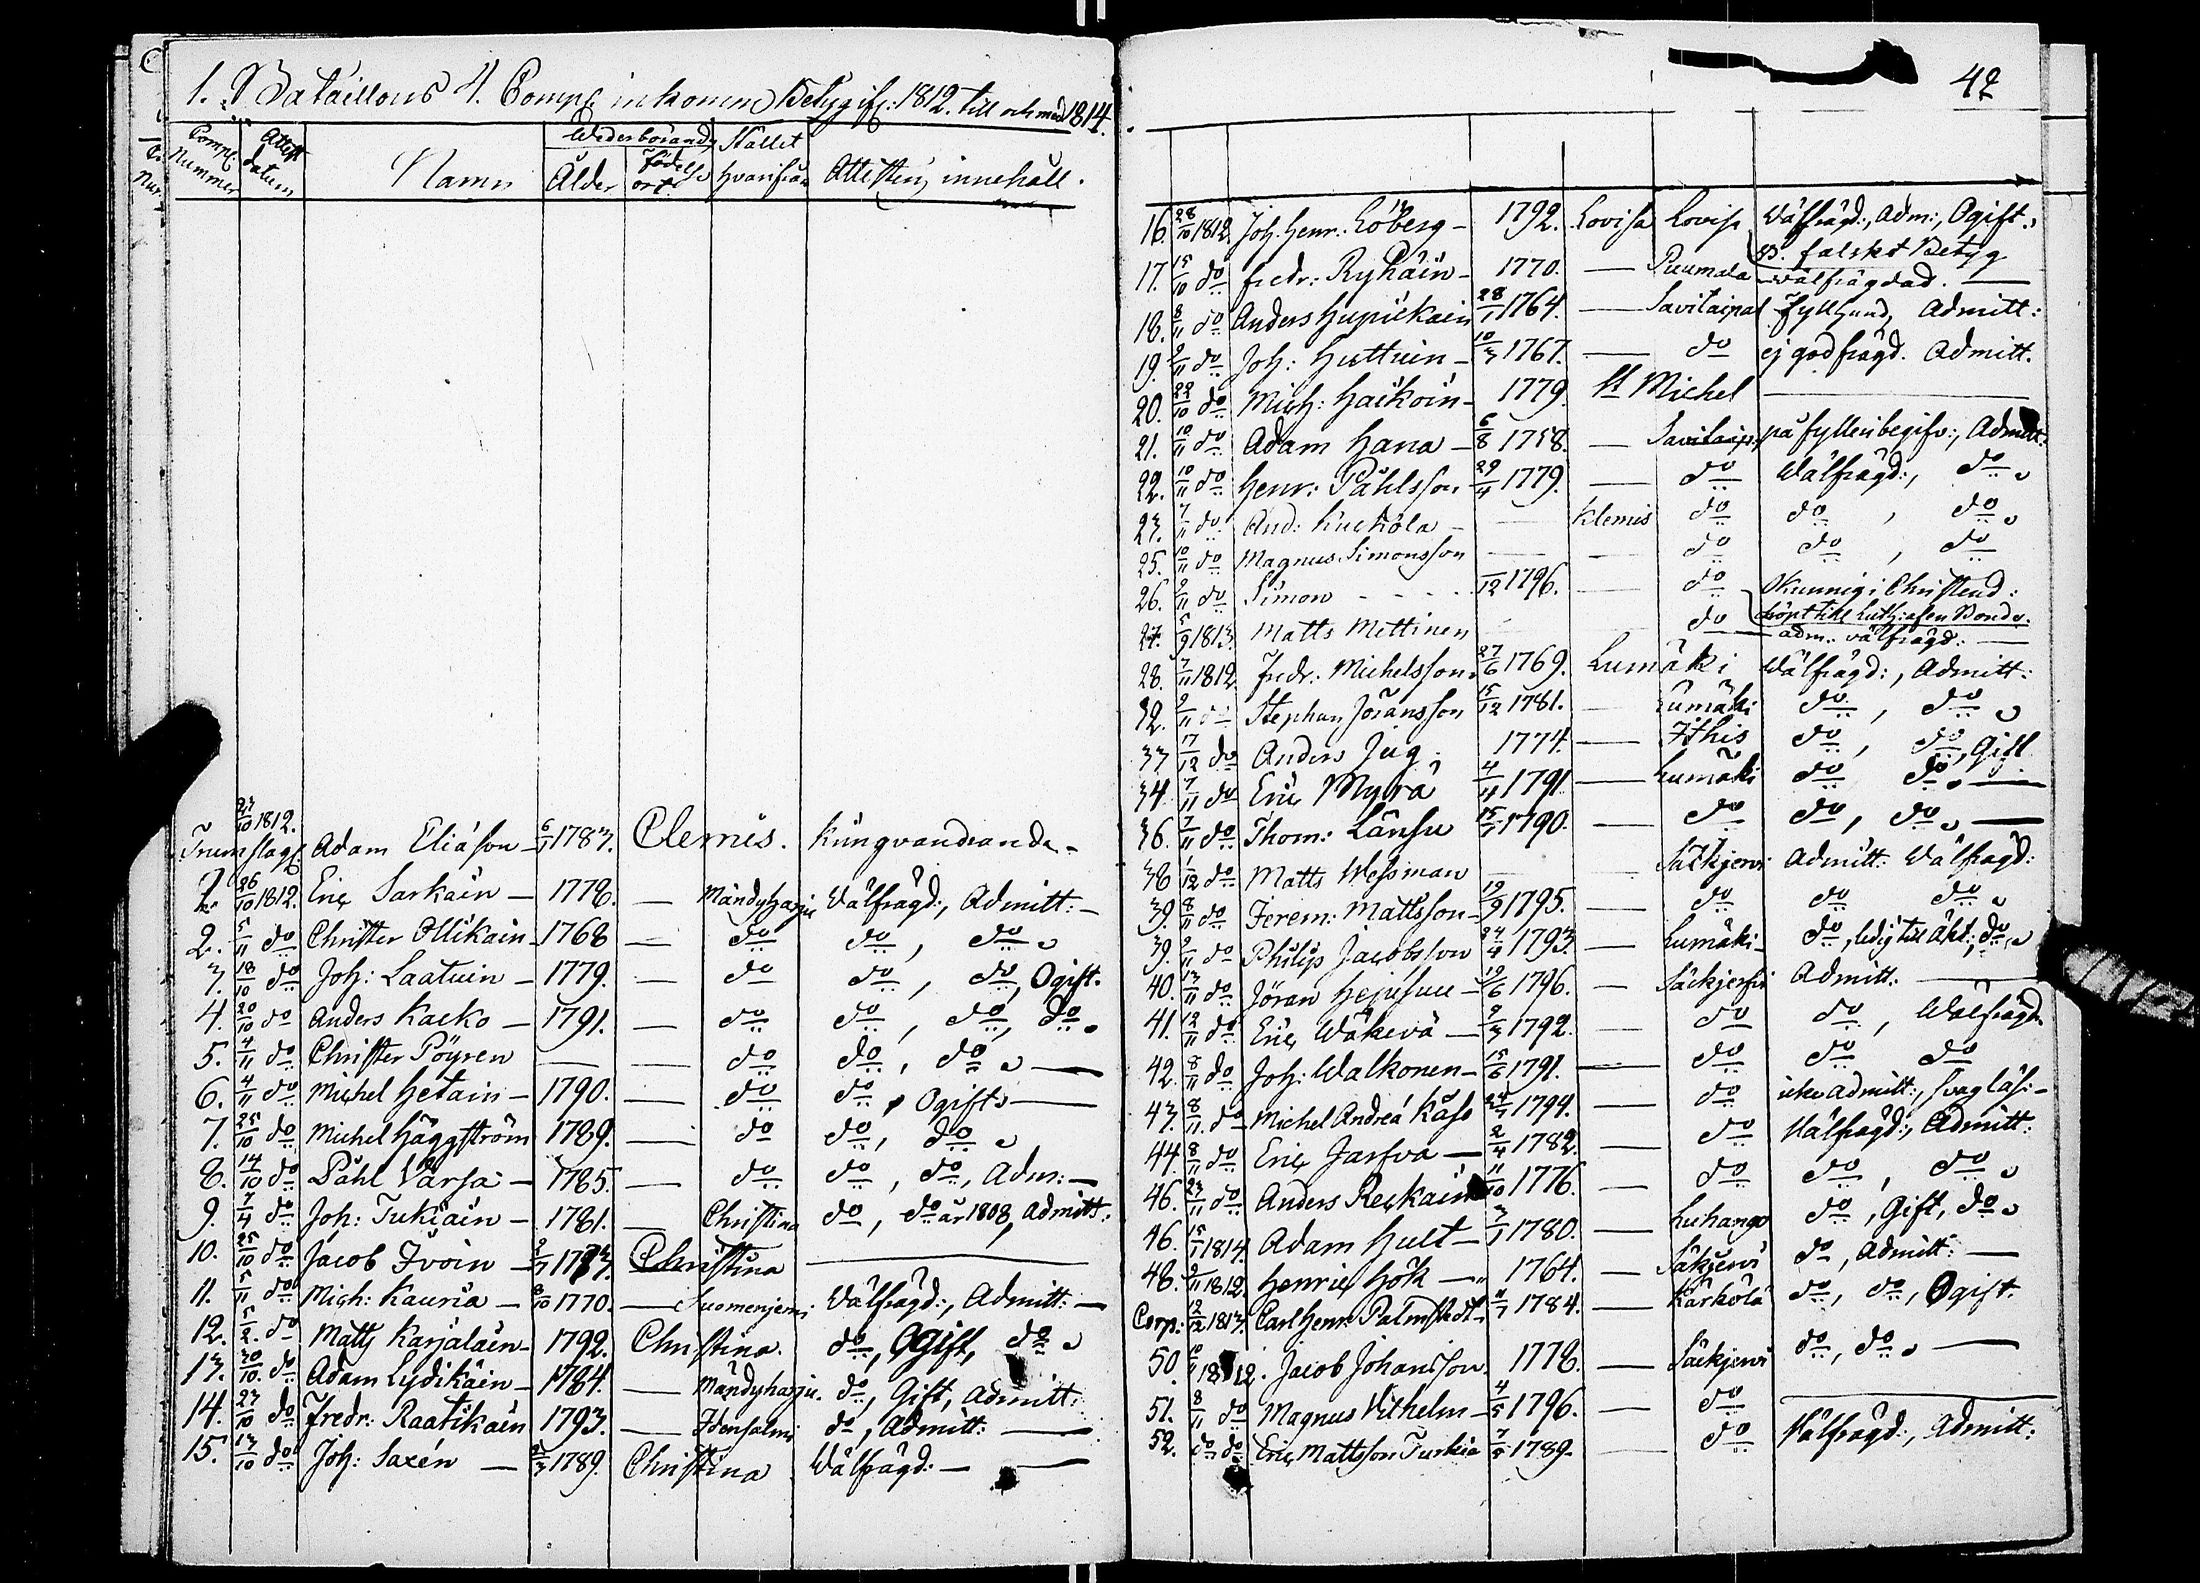 1. Bataillons 4. Comp: inkomne Betygif: 1812. till och med 1814.
Comp: Nummer Attest datum Namn Wederbörandes Ålder Födelse ort. Stället hvarifrån Attestens innehåll.
23/10 1812.
Trumslag: Adam Eliáson 6/1 1783. Clemis. Kringvandrande.
26/10 1812. Eric Sarkáin — 1778. — Mändyharju Wälfrägd:, Admitt: —
2. 5/11 do Christer Ollikain 1768 — do do, do
3. 18/10 do Joh: Laatuin — 1779. — do do, do, Ogift.
4. 20/10 do Anders Kacko — 1791. — do do, do, do
5. 4/11 do Christer Pöyren — — do do, do —
6. 4/11 do Michel Hetain — 1790. — do do, Ogift —
7. 25/10 do Michel Häggström 1789. — do do, do
8. 14/10 do Påhl Varsa — 1785. — do do, do, Adm: —
9. 7/4 do Joh: Tukiáin — 1781. — Christina do, do år 1808, Admitt:
10. 25/10 do Jacob Ivoin — Christina —
11. 5/11 do Mich: Kauria — 8/10 1770. — Suomenjemi Wälfrägd:, Admitt: —
12. 5/2. do Matts Karjalain — 1792. Christina. do, Ogift, do
13. 30/10. do Adam Lydikäin — 1784. — Mändyharju. do, Gift, Admitt:
14. 23/10 do Fredr: Raatikain 1793. — Idensalmi do, Admitt: —
15. 13/10 do Joh: Saxén — 1789. Christina Wälfrägd: —
42
16. 28/10 1812. Joh. Henr: Löberg — 1792. Lovisa Lovisa Wälfrägd:, Adm:, Ogift.,
falskt Betyg
17. 15/10 do Fredr: Ryhäin — 1770. — Puumala wälfrägdad. —
18. 8/11 do Anders Hupiekain 28/1 1764. — Savitaipal Admitt:
19. 9/11 do Joh: Huttuin — 10/3 1767. — do ej god frägd. Admitt.
20. 22/10 do Mich: Haikoin — 1779. St Michel —
21. 10/11 do Adam Hana — 6/8 1758. — Savitaip: på fylleri begifv:, Admitt:
22. 10/11 do Henr: Påhlsson 29/4 1779. — do Wälfrägd:, do
23. 7/11 do And: Kuckola — — Klemis do do, do
25. 10/11 do Magnus Simonsson — — do do, do
26. 9/11 do Simon - - - - /12 1796. — do Okunnig i Christend:
döpt till Luth: af en Bonde.
27. 5/9 1813. Matts Mettinen do adm: välfrägd: —
28. 7/11 1812. Fredr: Michelsson 27/6 1769. Lumäki Wälfrägd:, Admitt:
32. 9/11 do Stephan Jöransson 15/12 1781. — Lumäki do, do
33 17/12 do Anders Jug 1774. — Itthis do, do, Gift
34. 7/11 do Eric Myrå 4/4 1791 — Lumäki do do —
36. 7/11 do Thom: Länsu 15/1 1790. — do do, do —
38 1/12 do Matts Wessman — Säckjervi Admitt: Wälfrägd:
39. 8/11 do Jerem: Mattsson — 19/9 1795. — do do do
39. 9/11 do Philip Jacobsson 24/4 1793 — Lumäki — do, ledig till äkt:, do
40. 13/11 do Jöran — 19/6 1796. — Säckjerfvi Admitt: —
41. 12/11 do Eric Wäkevä — 9/3 1792. — do do, Wälfrägd
42. 8/11 do Joh: Walkonen — 15/6 1791. — do do do
43. 8/11. do Michel Andreá Kåss 24/ 1794. — do icke admitt:, svag läs: —
44. 8/11 do Eric Jarfva — 2/4 1782. — do Wälfrägd:, Admitt:
46. 23/11 do Anders Reckain 11/10 1776. — do do, do
46. 15/1 1814. Adam Hult — 3/1 1780. — Luhango do, Gift, do
48. 9/11 1812. Henric Hök — 1764. — Säkjervi do, Admitt: —
Corp: 12/12 1813. Carl Henr: Palmstedt — 11/1 1784. — Kärkölä do, do, Ogift.
50. 10/11 1812. Jacob Johansson 1778. — Säckjervi do, do —
51. 8/11 do Magnus Vilhelm — 4/5 1796. — do —
52. do do Eric Mattsson Turkia 1789. — do Wälfrägd:, Admitt: